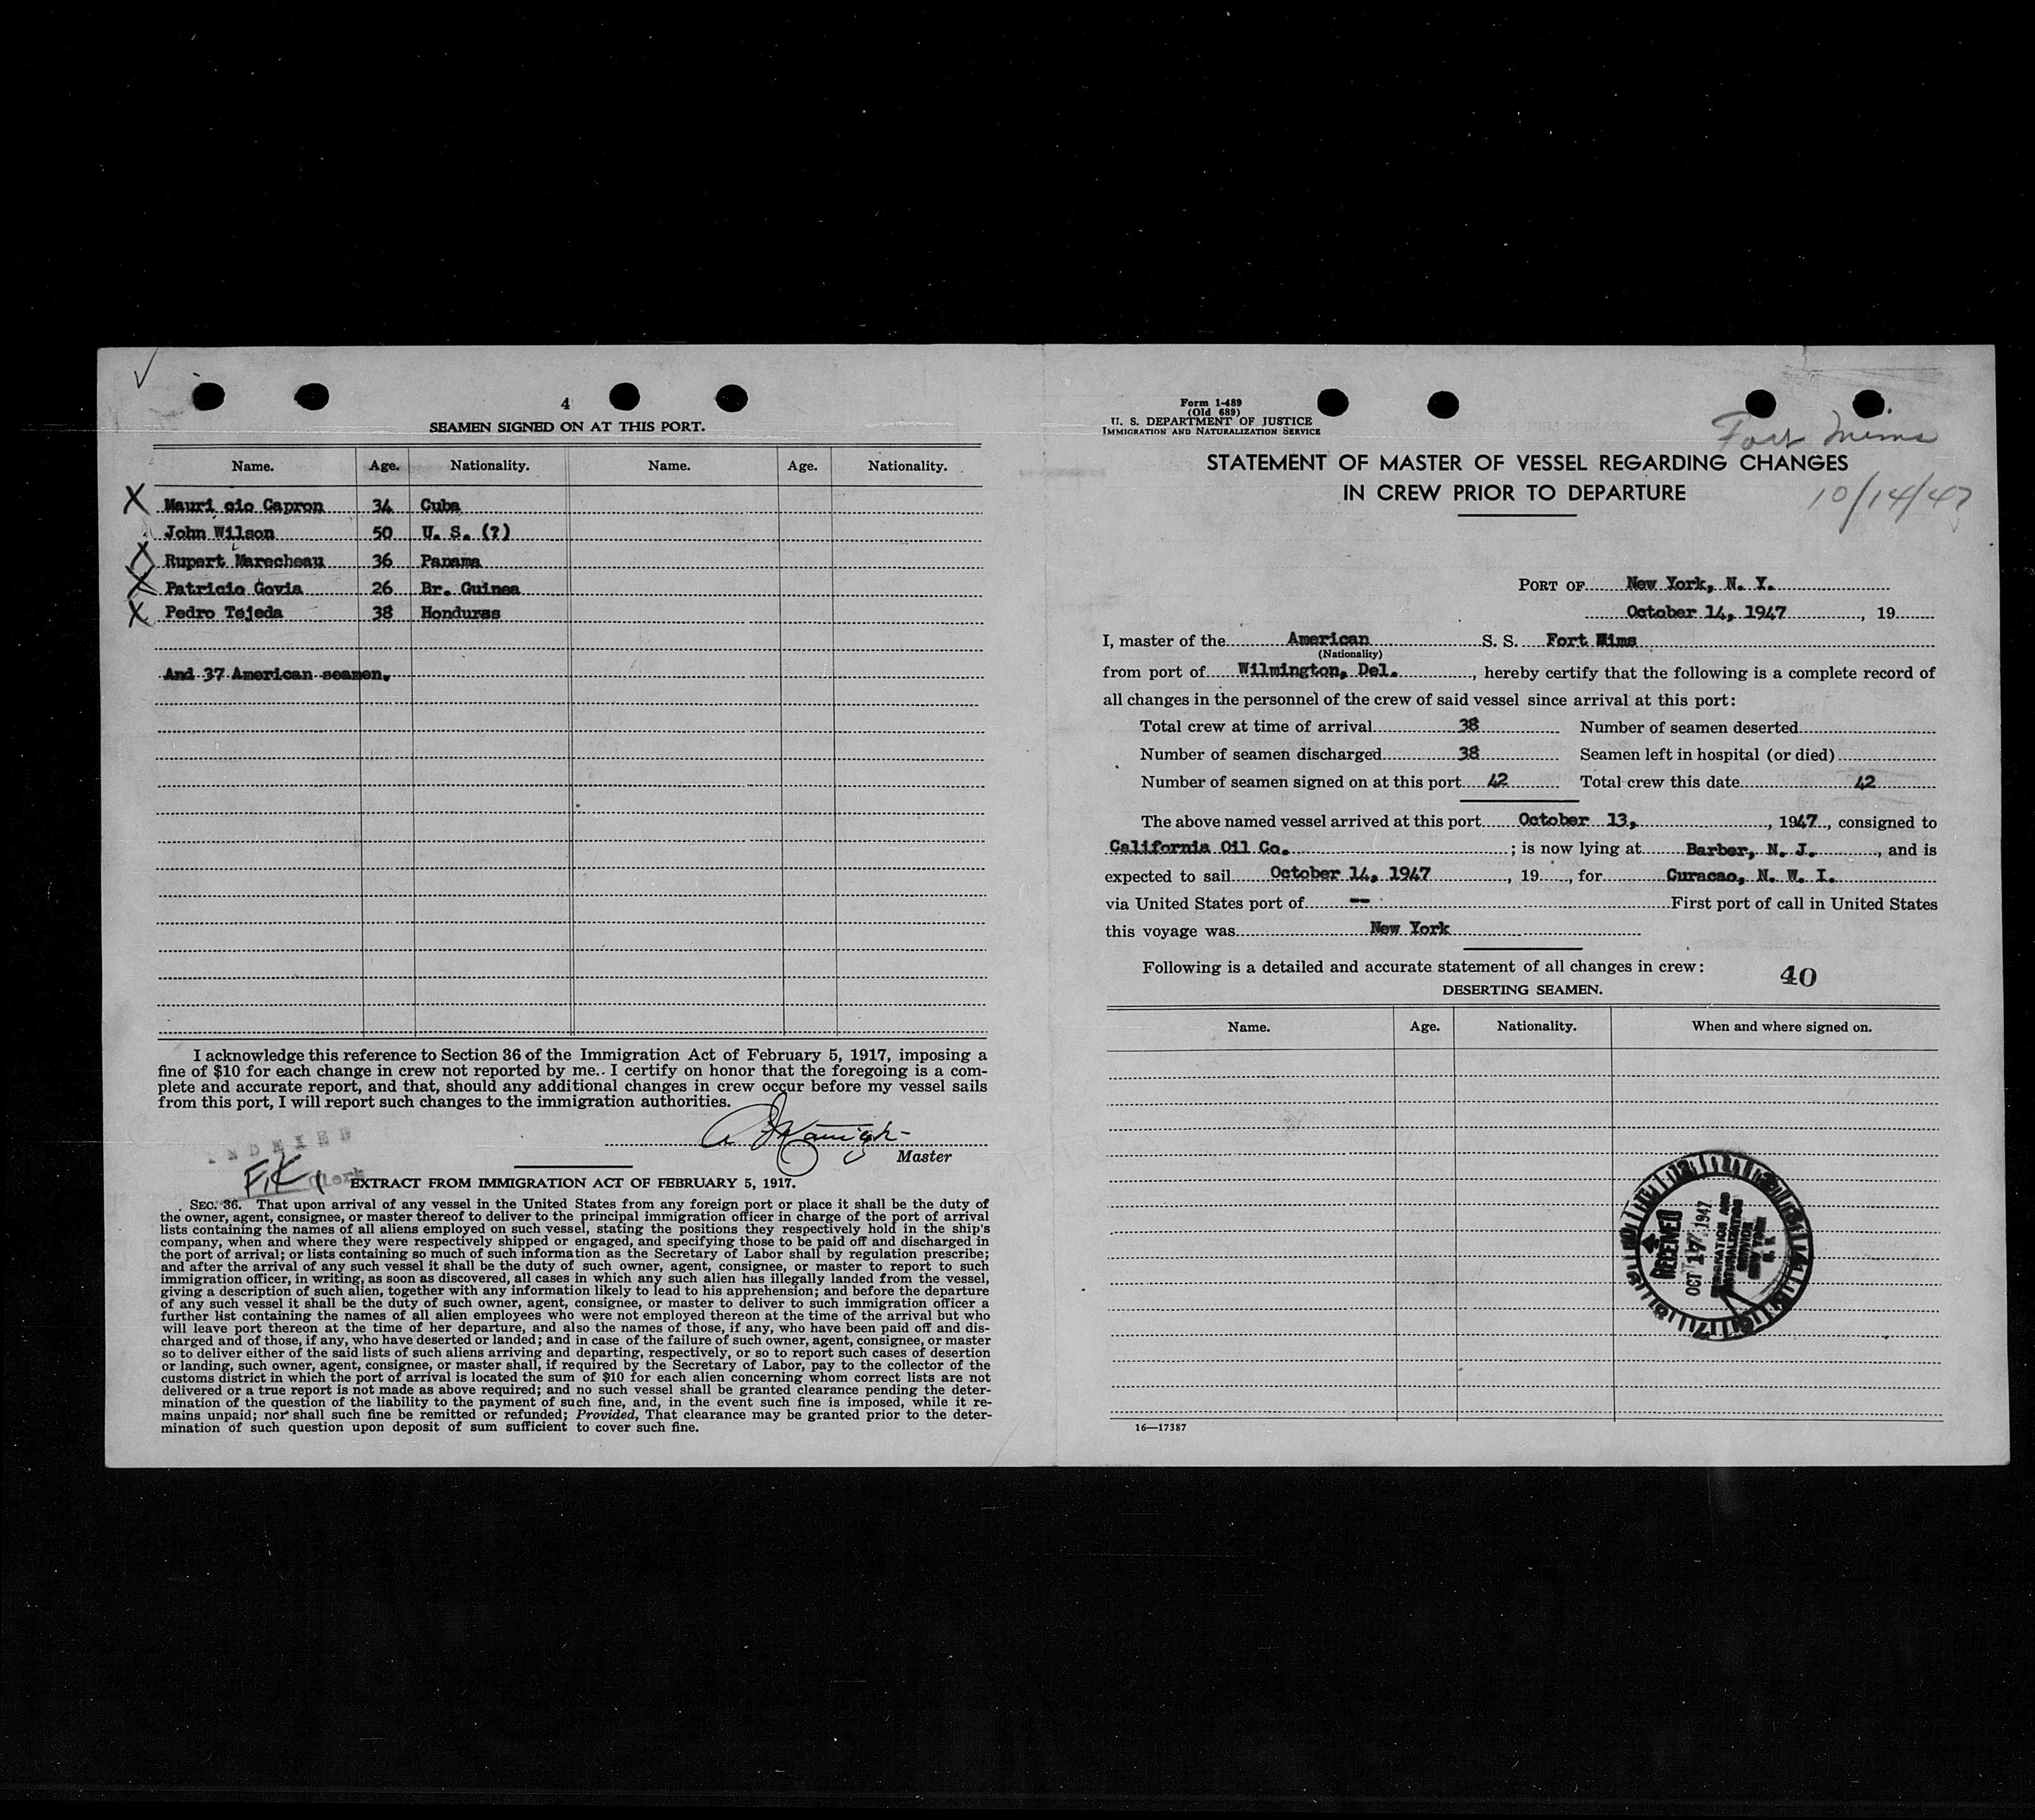 4
SEAMEN SIGNED ON AT THIS PORT.
Name. Age. Nationality. Name. Age. Nationality.
X Mauri cio Capron 34 Cuba
John Wilson 50 U. S. (?)
X Rupert Marecheau 36 Panama
X Patricio Govia 26 Br. Guinea
X Pedro Tejeda 38 Honduras
And 37 American seamen.
I acknowledge this reference to Section 36 of the Immigration Act of February 5, 1917, imposing a
fine of $10 for each change in crew not reported by me. I certify on honor that the foregoing is a com-
plete and accurate report, and that, should any additional changes in crew occur before my vessel sails
from this port, I will report such changes to the immigration authorities.
Master
INDEXED
F.K. Clerk
EXTRACT FROM IMMIGRATION ACT OF FEBRUARY 5, 1917.
SEC. 36. That upon arrival of any vessel in the United States from any foreign port or place it shall be the duty of
the owner, agent, consignee, or master thereof to deliver to the principal immigration officer in charge of the port of arrival
lists containing the names of all aliens employed on such vessel, stating the positions they respectively hold in the ship's
company, when and where they were respectively shipped or engaged, and specifying those to be paid off and discharged in
the port of arrival; or lists containing so much of such information as the Secretary of Labor shall by regulation prescribe;
and after the arrival of any such vessel it shall be the duty of such owner, agent, consignee, or master to report to such
immigration officer, in writing, as soon as discovered, all cases in which any such alien has illegally landed from the vessel,
giving a description of such alien, together with any information likely to lead to his apprehension; and before the departure
of any such vessel it shall be the duty of such owner, agent, consignee, or master to deliver to such immigration officer a
further list containing the names of all alien employees who were not employed thereon at the time of the arrival but who
will leave port thereon at the time of her departure, and also the names of those, if any, who have been paid off and dis-
charged and of those, if any, who have deserted or landed; and in case of the failure of such owner, agent, consignee, or master
so to deliver either of the said lists of such aliens arriving and departing, respectively, or so to report such cases of desertion
or landing, such owner, agent, consignee, or master shall, if required by the Secretary of Labor, pay to the collector of the
customs district in which the port of arrival is located the sum of $10 for each alien concerning whom correct lists are not
delivered or a true report is not made as above required; and no such vessel shall be granted clearance pending the deter-
mination of the question of the liability to the payment of such fine, and, in the event such fine is imposed, while it re-
mains unpaid; nor shall such fine be remitted or refunded; Provided, That clearance may be granted prior to the deter-
mination of such question upon deposit of sum sufficient to cover such fine.
Form I-489
(Old 689)
U. S. DEPARTMENT OF JUSTICE
IMMIGRATION AND NATURALIZATION SERVICE
Fort Mims
STATEMENT OF MASTER OF VESSEL REGARDING CHANGES
IN CREW PRIOR TO DEPARTURE
10/14/47
PORT OF New York, N. Y.
October 14, 1947, 19
I, master of the American S. S. Fort Mims
(Nationality)
from port of Wilmington, Del., hereby certify that the following is a complete record of
all changes in the personnel of the crew of said vessel since arrival at this port:
Total crew at time of arrival 38 Number of seamen deserted
Number of seamen discharged 38 Seamen left in hospital (or died)
Number of seamen signed on at this port 42 Total crew this date 42
The above named vessel arrived at this port October 13, , 1947, consigned to
California Oil Co. ; is now lying at Barber, N. J., and is
expected to sail October 14, 1947, 19 , for Curacao, N. W. I.
via United States port of -- First port of call in United States
this voyage was New York
Following is a detailed and accurate statement of all changes in crew:
40
DESERTING SEAMEN.
Name. Age. Nationality. When and where signed on.
RECEIVED
OCT 17 1947
IMMIGRATION AND
NATURALIZATION
SERVICE
NEW YORK
N. Y.
16—17387